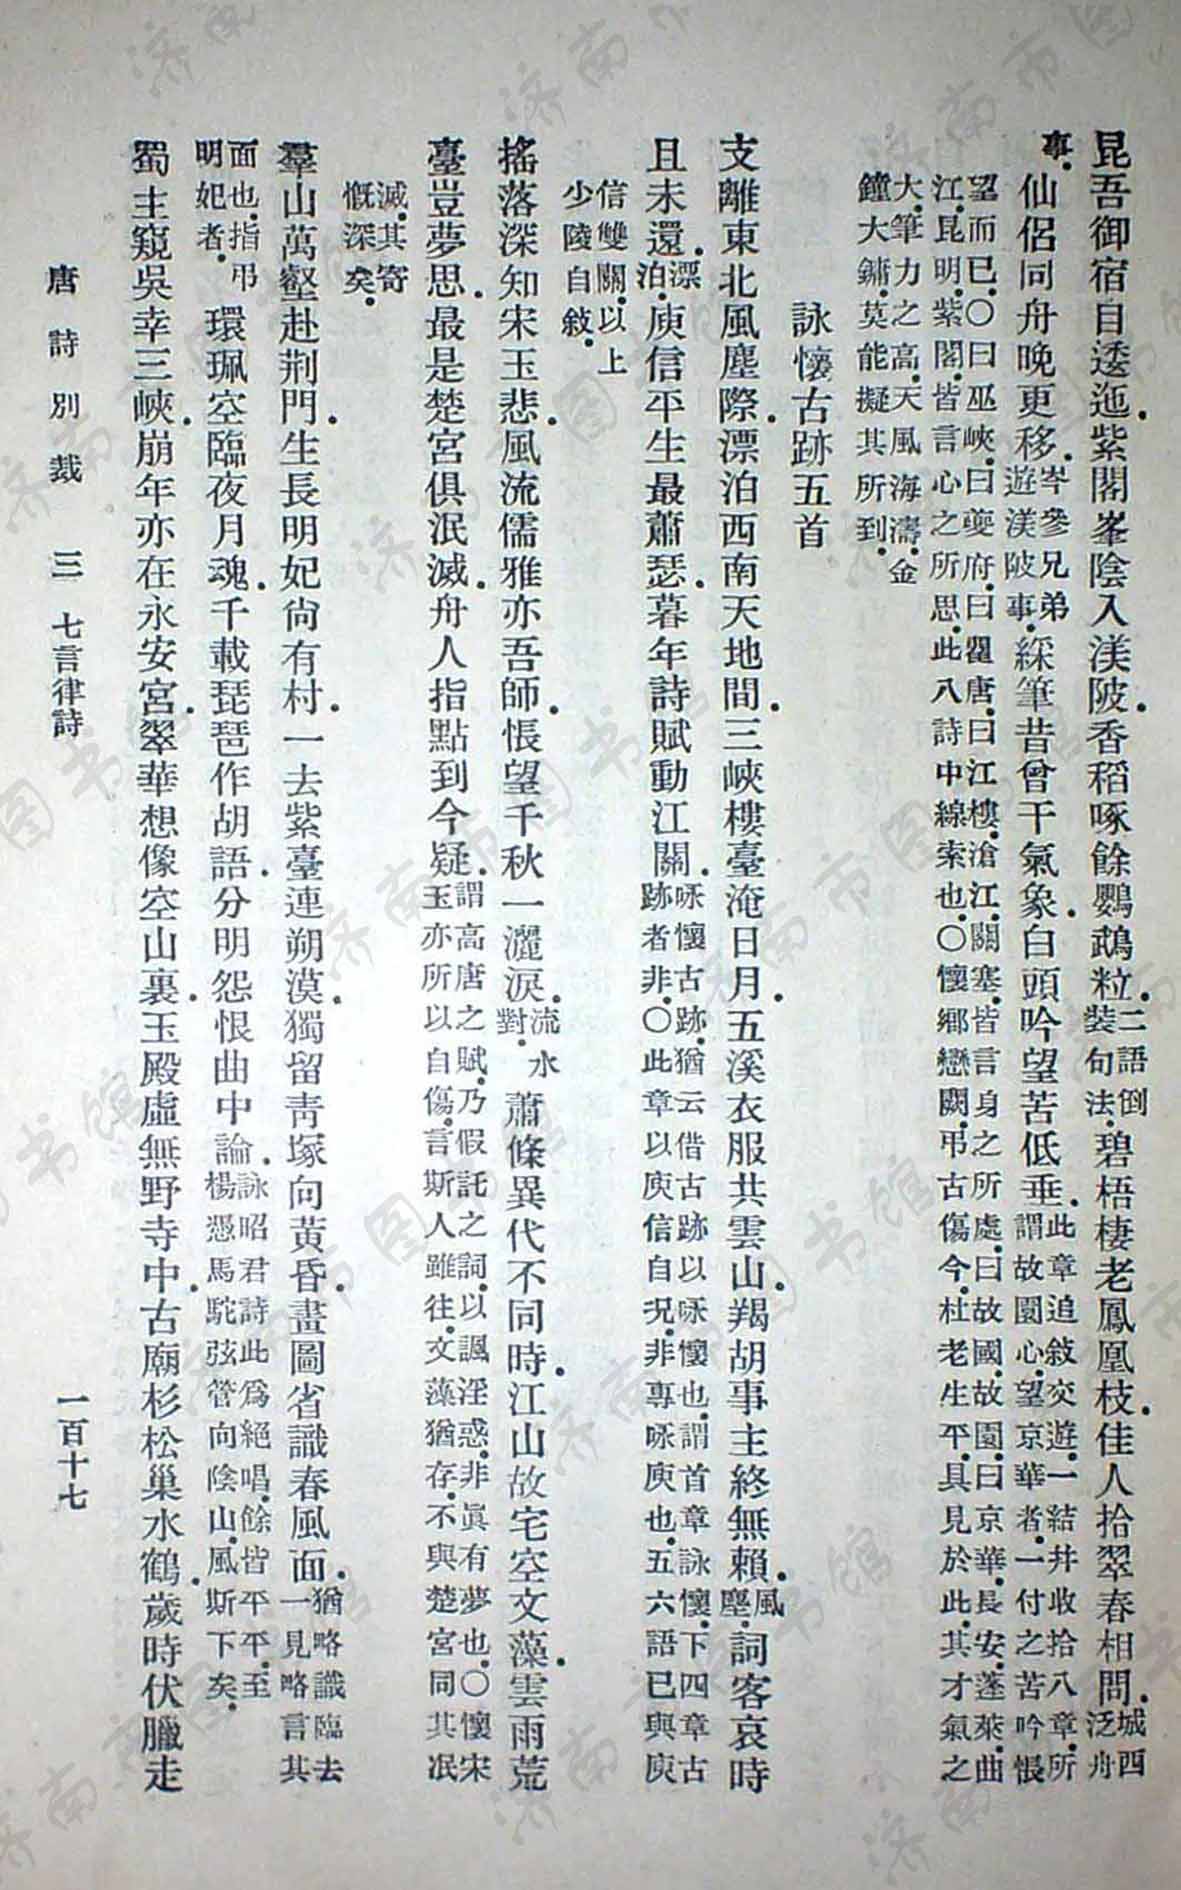 昆吾御宿自逶迤。紫閣峯陰入渼陂。香稻啄餘鸚鵡粒。二語倒裝句法。碧梧棲老鳳凰枝。佳人拾翠春相問。城西泛舟
事。仙侶同舟晚更移。岑參兄弟遊渼陂事。綵筆昔曾干氣象。白頭吟望苦低垂。此章追敍交遊。一結并收拾八章。所謂故園心。望京華者。一付之苦吟悵
望而已。〇曰巫峽。曰夔府。曰瞿唐。曰江樓。滄江。關塞。皆言身之所處。曰故國。故園。曰京華。長安。蓬萊。曲
江。昆明。紫閣。皆言心之所思。此八詩中線索也。〇懷鄉戀闕。弔古傷今。杜老生平。具見於此。其才氣之
大。筆力之高。天風海濤。金
鐘大鏞。莫能擬其所到。
詠懷古跡五首
支離東北風塵際。漂泊西南天地間。三峽樓臺淹日月。五溪衣服共雲山。羯胡事主終無賴。風塵。詞客哀時
且未還。漂泊。庾信平生最蕭瑟。暮年詩賦動江關。咏懷古跡。猶云借古跡以咏懷也。謂首章詠懷。下四章古跡者非。〇此章以庾信自況。非專咏庾也。五六語已與庾
信雙關。以上
少陵自敍。
搖落深知宋玉悲。風流儒雅亦吾師。悵望千秋一灑淚。流水對。蕭條異代不同時。江山故宅空文藻。雲雨荒
臺豈夢思。最是楚宮俱泯滅。舟人指點到今疑。謂高唐之賦。乃假託之詞。以諷淫惑。非眞有夢也。〇懷宋玉亦所以自傷。言斯人雖往。文藻猶存。不與楚宮同其泯
滅。其寄
慨深矣。
羣山萬壑赴荆門。生長明妃尚有村。一去紫臺連朔漠。獨留青塚向黃昏。畫圖省識春風面。猶略識臨去一見略言其
面也。指弔明妃者。環珮空臨夜月魂。千載琵琶作胡語。分明怨恨曲中論。詠昭君詩此爲絕唱。餘皆平平。至楊憑馬駝弦管向陰山。風斯下矣。
蜀主窺吳幸三峽。崩年亦在永安宮。翠華想像空山裏。玉殿虛無野寺中。古廟杉松巢水鶴。歲時伏臘走
唐詩別裁 三 七言律詩 一百十七
济南市图书馆